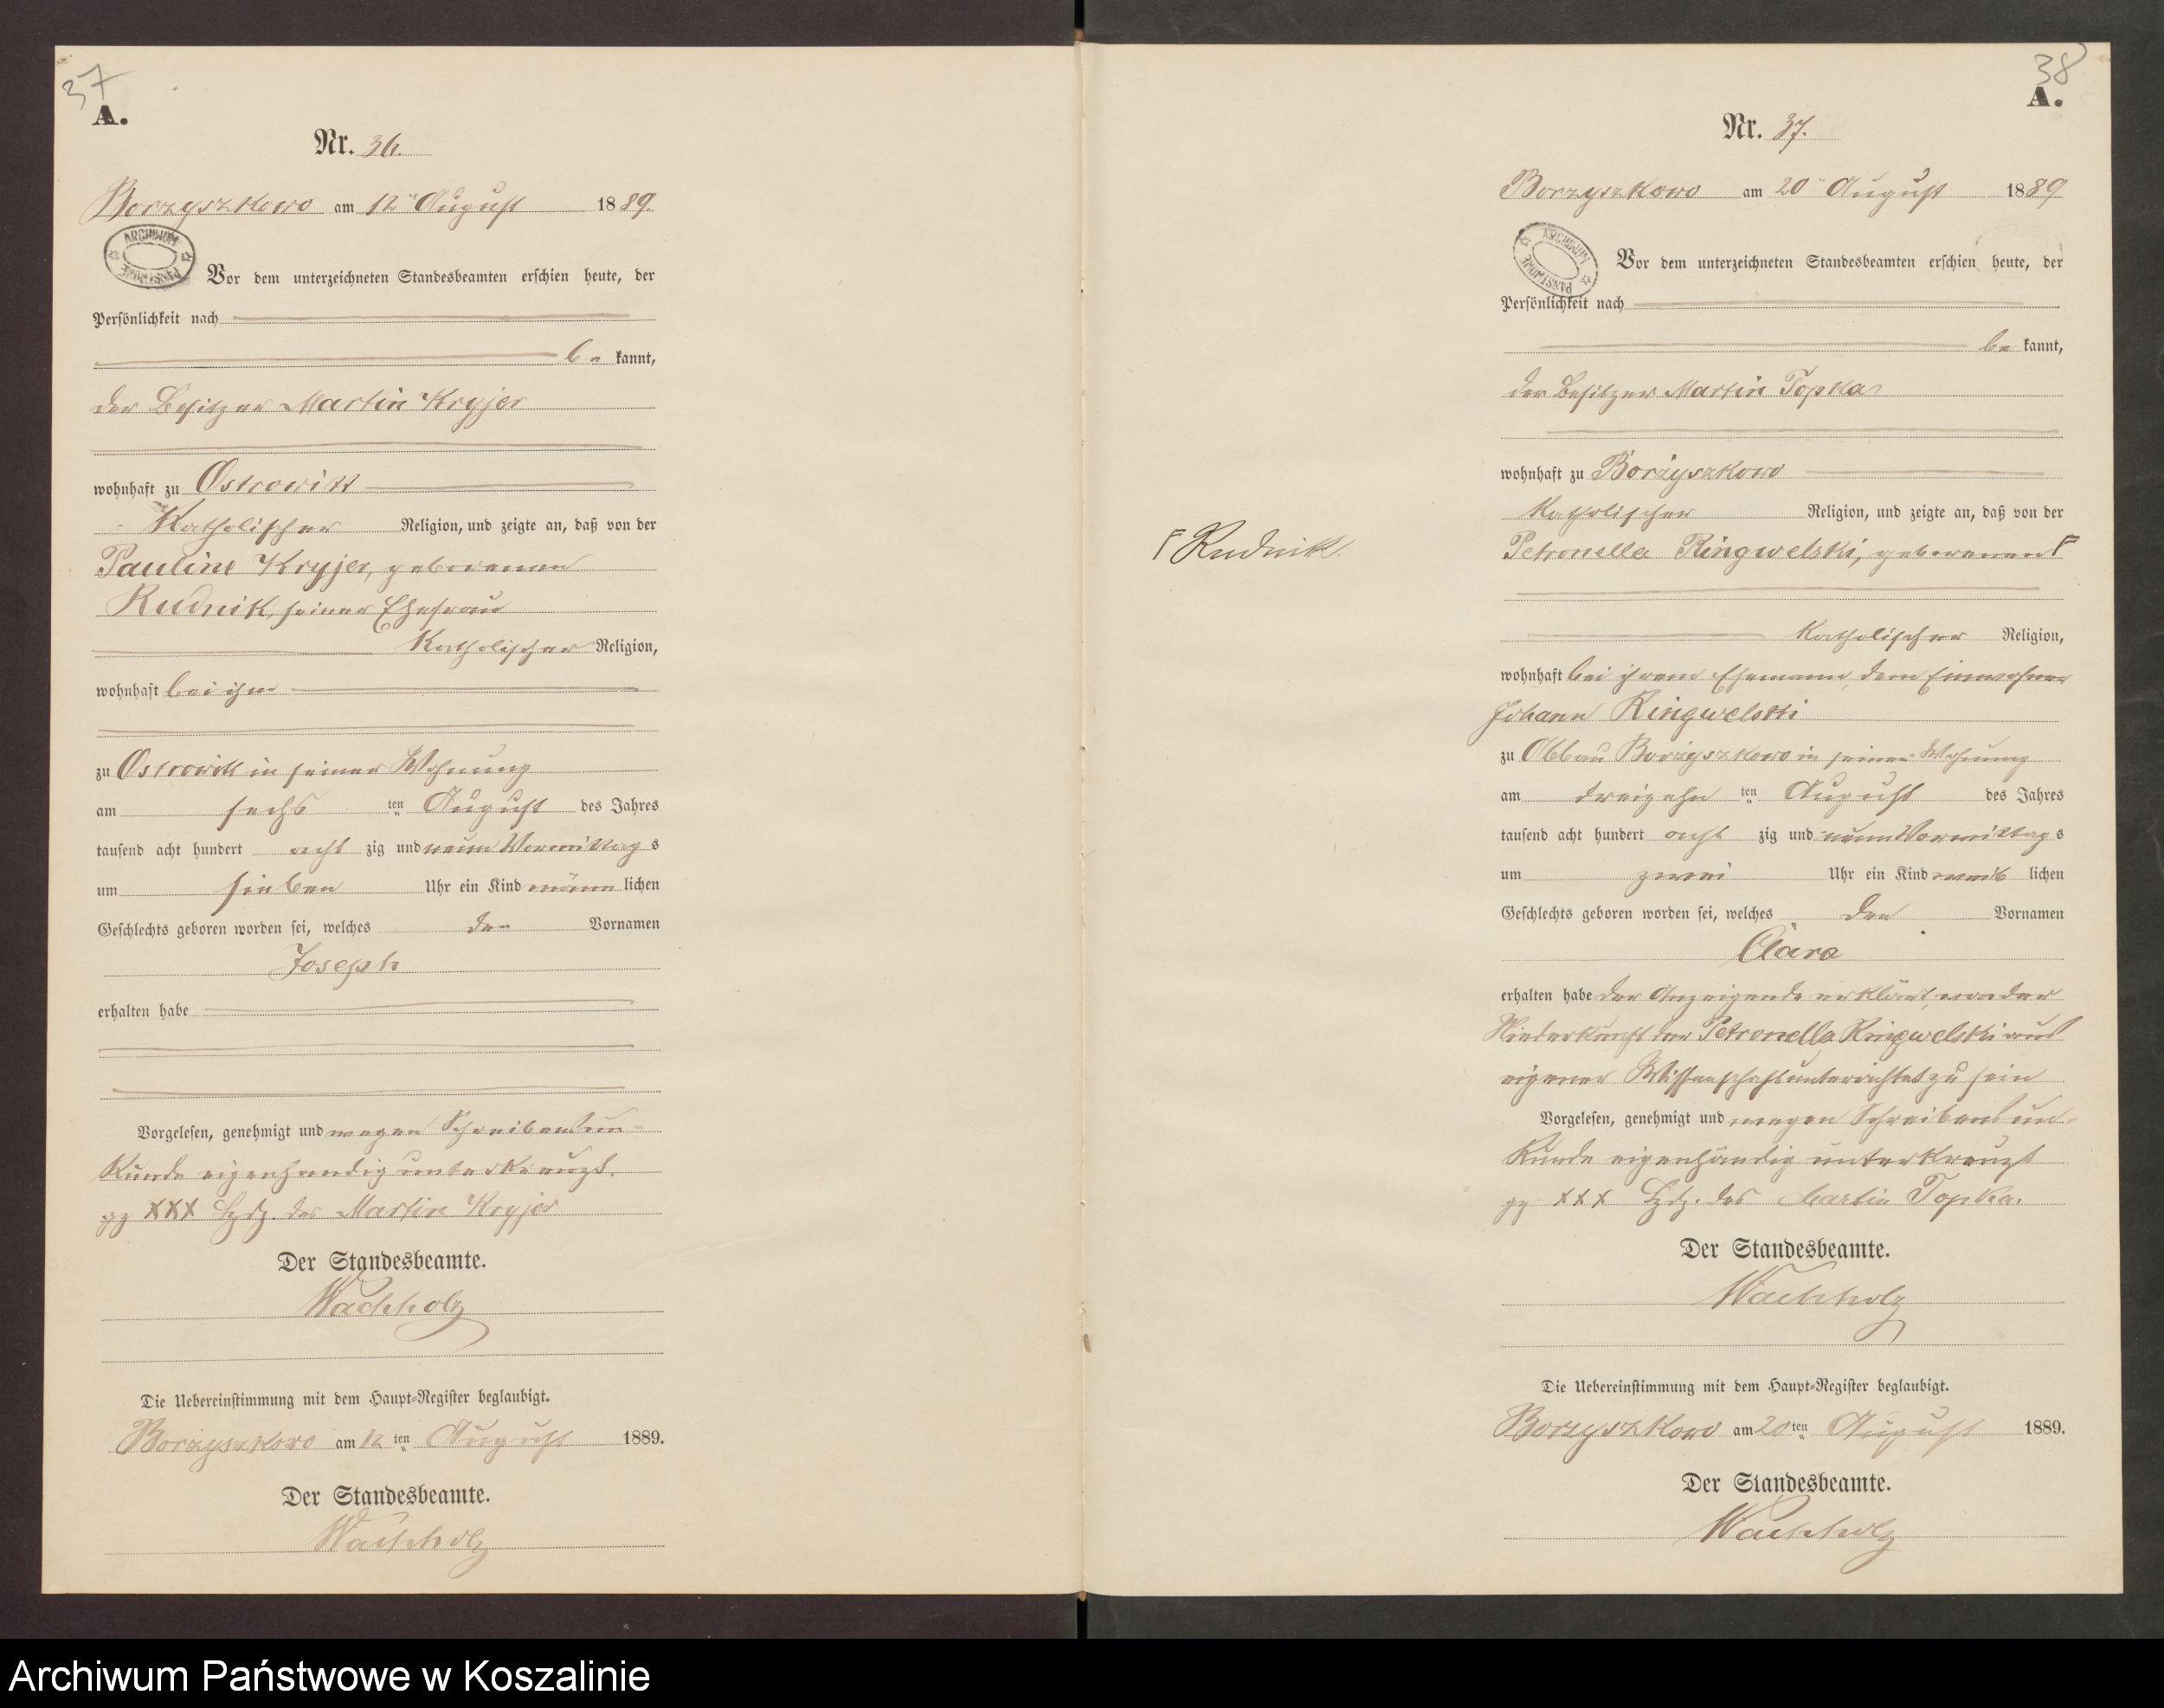 37
A.
Nr. 36.
Borzyszkowo am 12 August 1889.
ARCHIWUM PAŃSTWOWE
Vor dem unterzeichneten Standesbeamten erschien heute, der
Persönlichkeit nach
be kannt,
der Besitzer Martin Kryjer
wohnhaft zu Ostrowitt
Katholischer Religion, und zeigte an, daß von der
Pauline Kryjer, geborenen
Rudnik, seiner Ehefrau
Katholischer Religion,
wohnhaft bei ihm
zu Ostrowitt in seiner Wohnung
am sechs ten August des Jahres
tausend acht hundert acht zig und neun Vormittag s
um sieben Uhr ein Kind männ lichen
Geschlechts geboren worden sei, welches den Vornamen
Joseph
erhalten habe
Vorgelesen, genehmigt und wegen Schreibensun-
kunde eigenhändig unterkreuzt.
gz XXX Hdz. des Martin Kryjer
Der Standesbeamte.
Wachholz
Die Uebereinstimmung mit dem Haupt-Register beglaubigt.
Borzyszkowo am 12 ten August 1889.
Der Standesbeamte.
Wachholz
38
A.
Nr. 37.
Borzyszkowo am 20 August 1889
ARCHIWUM PAŃSTWOWE
Vor dem unterzeichneten Standesbeamten erschien heute, der
Persönlichkeit nach
be kannt,
der Besitzer Martin Topka
wohnhaft zu Borzyszkowo
Katholischer Religion, und zeigte an, daß von der
Petronella Ringwelski, geborenen F
F Rudnik.
Katholischer Religion,
wohnhaft bei ihrem Ehemann, dem Einwohner
Johann Ringwelski
zu Abbau Borzyszkowo in seiner Wohnung
am dreizehn ten August des Jahres
tausend acht hundert acht zig und neun Vormittag s
um zwei Uhr ein Kind weib lichen
Geschlechts geboren worden sei, welches den Vornamen
Clara
erhalten habe der Anzeigende erklärt, von der
Niederkunft der Petronella Ringwelski aus
eigener Wissenschaft unterrichtet zu sein
Vorgelesen, genehmigt und wegen Schreibensun-
kunde eigenhändig unterkreuzt
gz XXX Hdz. des Martin Topka.
Der Standesbeamte.
Wachholz
Die Uebereinstimmung mit dem Haupt-Register beglaubigt.
Borzyszkowo am 20 ten August 1889.
Der Standesbeamte.
Wachholz
Archiwum Państwowe w Koszalinie